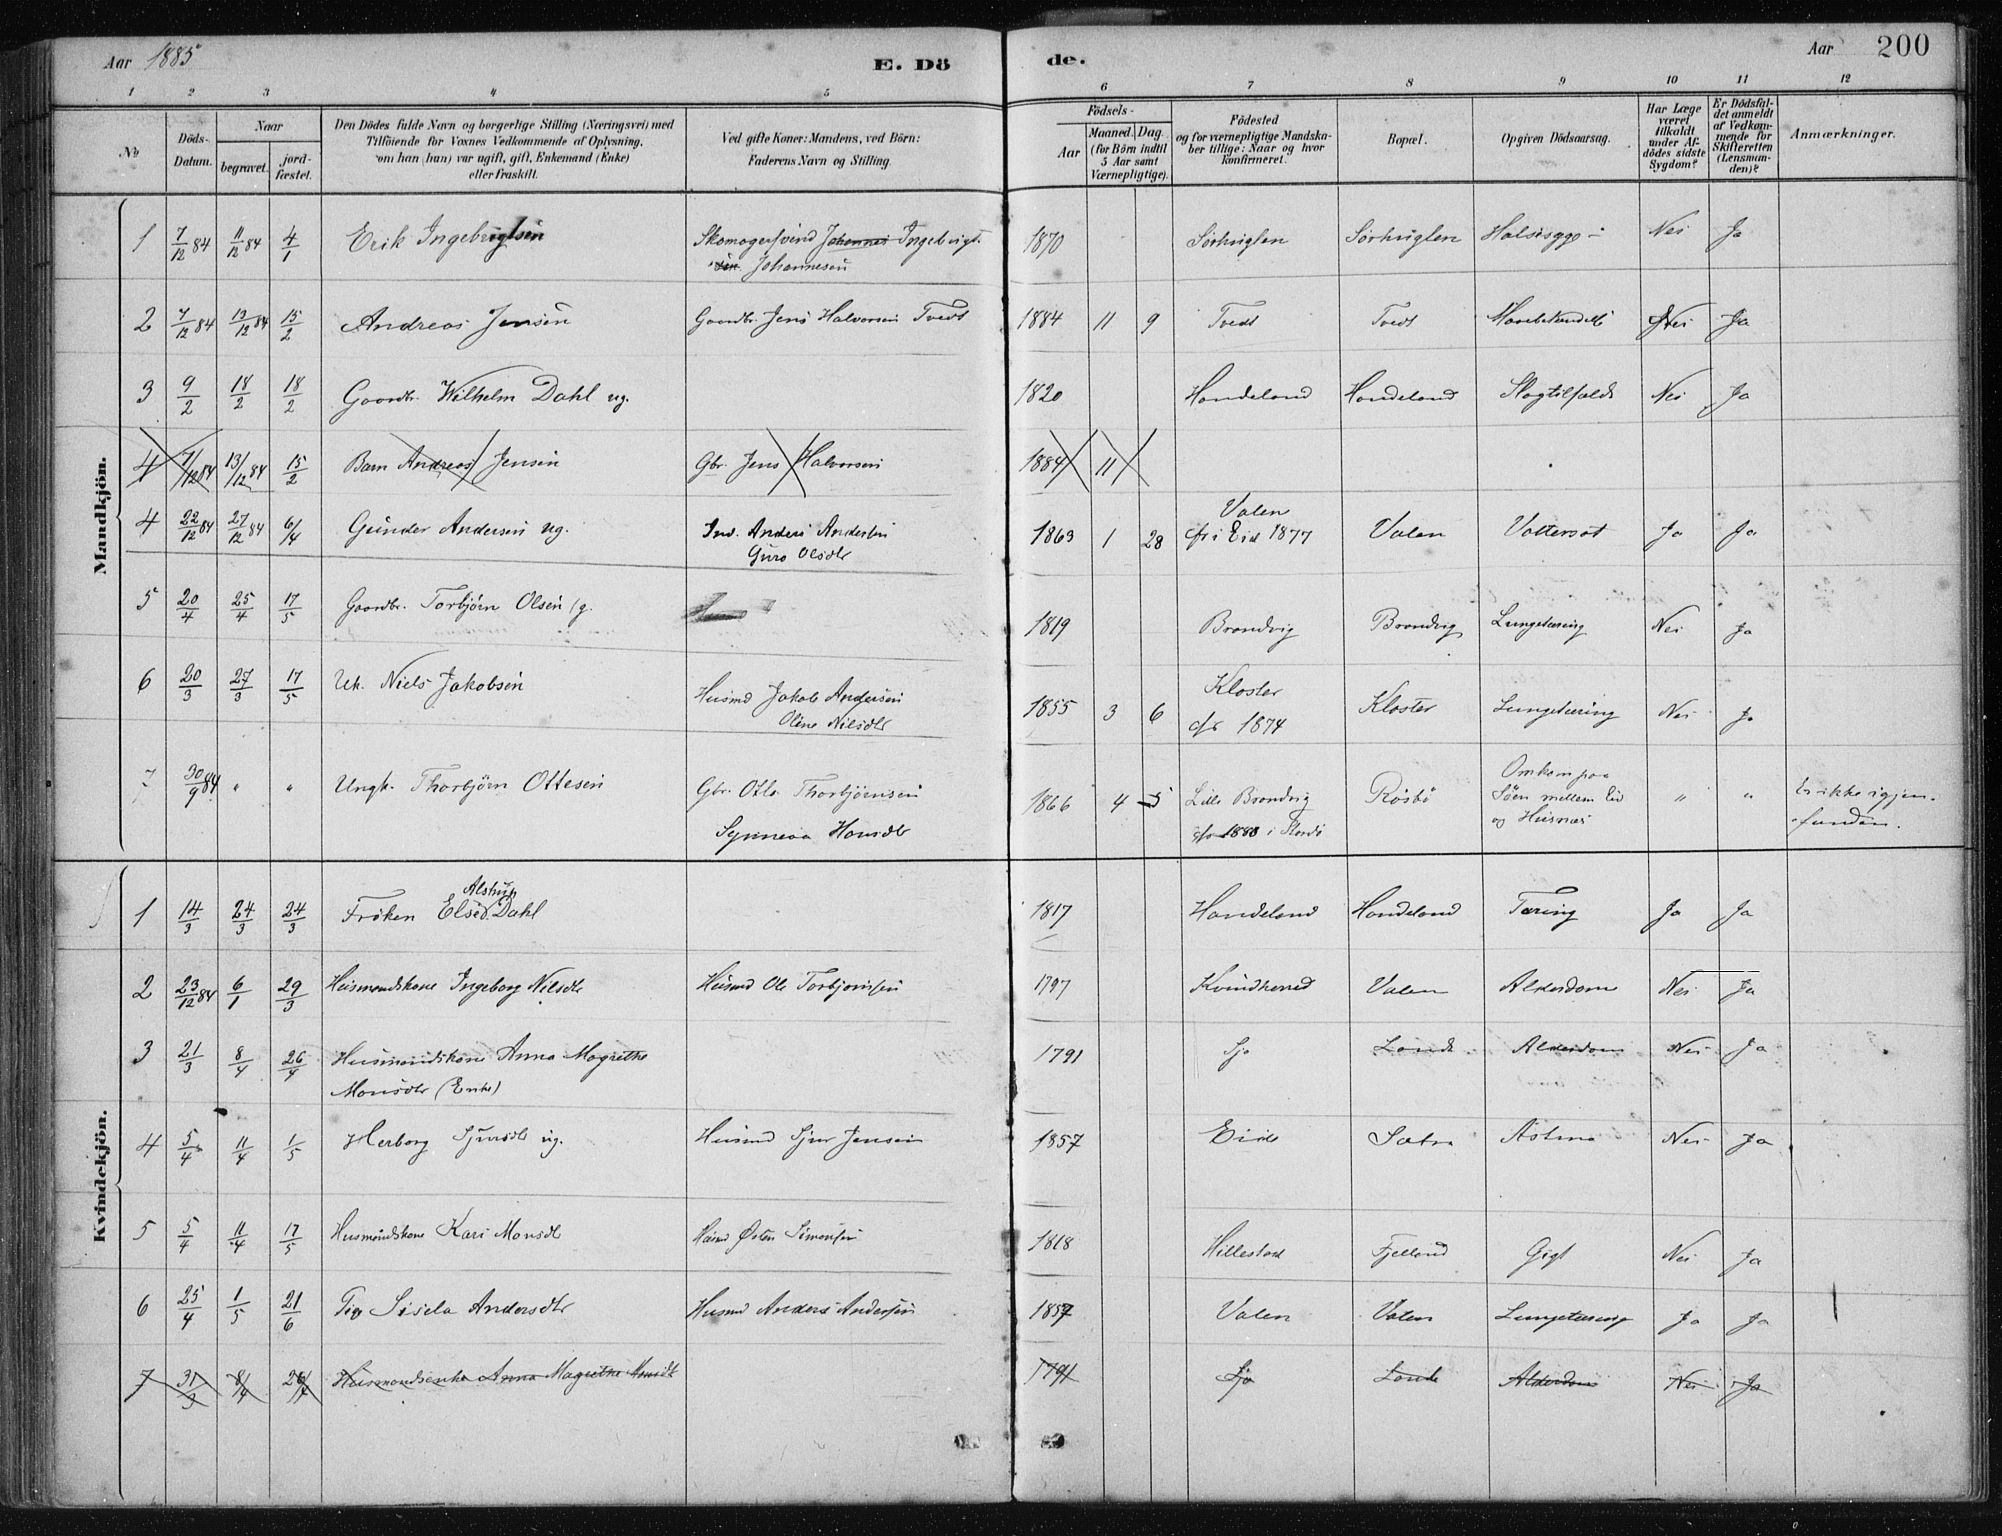 Aar 1885 E. Dö de. Aar 200
1 2 3 4 5 6 7 8 9 10 11 12
No Döds-Datum. Naar begravet. jordfæstet. Den Dödes fulde Navn og borgerlige Stilling (Næringsvei) med Tilföiende for Voxnes Vedkommende af Oplysning, om han (hun) var ugift, gift, Enkemand (Enke) eller fraskilt. Ved gifte Koner: Mandens, ved Börn: Faderens Navn og Stilling. Födsels- Aar Maaned. Dag. (for Börn indtil 5 Aar samt Værnepligtige). Födested og for værnepligtige Mandskaber tillige: Naar og hvor konfirmeret. Bopæl. Opgiven Dödsaarsag. Har Læge været tilkaldt under Afdödes sidste Sygdom? Er Dödsfaldet anmeldt af Vedkommende for Skifteretten (Lensmanden)? Anmærkninger.
Mandkjön.
1 7/12 84 11/12 84 4/1 Erik Ingebrigtsen Skomagersvend Johannes Ingebrigt- 1870 Sörhuglen Sörhuglen Halssyge Nei Ja
sen Johannesen
2 7/12 84 13/12 84 15/2 Andreas Jensen Gaardbr. Jens Halvorsen Tvedt 1884 11 9 Tvedt Tvedt Nei Ja
3 9/2 18/2 18/2 Gaardbr. Wilhelm Dahl ug. 1820 Handeland Handeland Slagtilfælde Nei Ja
4 7/12 84 13/12 84 15/2 Barn Andreas Jensen Gbr. Jens Halvorsen 1884 11
4 22/12 84 27/12 84 6/4 Gunder Andersen ug. Ind. Anders Andersen 1863 1 28 Valen Valen Vattersot Ja Ja
Guro Olsdtr cfr i Eid 1877
5 20/4 25/4 17/5 Gaardbr. Torbjörn Olsen g. 1819 Brandvig Brandvig Lungetæring Nei Ja
6 20/3 27/3 17/5 Uk. Niels Jakobsen Husmd Jakob Andersen 1855 3 6 Kloster Kloster Lungetæring Nei Ja
Oline Nilsdtr cfr 1874
7 30/9 84 " " Ungk. Thorbjörn Ottesen Gbr. Otto Thorbjörnsen 1866 4 5 Lille Brandvig Rösbö Omkom paa Söen mellem Eid og Husnæs " " Er ikke igjen-
Synneva Hansdtr cfr 1880 i Stordö funden.
Kvindekjön.
1 14/3 24/3 24/3 Fröken Elsed. Alstrup Dahl 1817 Handeland Handeland Tæring Ja Ja
2 23/12 84 6/1 29/3 Husmandskone Ingeborg Nilsdtr Husmd Ole Torbjörnsen 1797 Kvindherred Valen Alderdom Nei Ja
3 21/3 8/4 26/4 Husmandskone Anna Magrethe 1791 Sjo Lande Alderdom Nei Ja
Monsdtr (Enke)
4 5/4 11/4 1/5 Herborg Sjursdtr ug. Husmd Sjur Jensen 1857 Eide Sætre Astma Nei Ja
5 5/4 11/4 17/5 Husmandskone Kari Monsdtr Husmd Östen Simonsen 1818 Hillestad Fjelland Gigt Nei Ja
6 25/4 1/5 21/6 Pige Sisela Andersdtr Husmd Anders Andersen 1857 Valen Valen Lungetæring Ja Ja
7 31/3 8/4 26/4 Husmandsenke Anna Magrethe Monsdtr 1791 Sjo Lande Alderdom Nei Ja